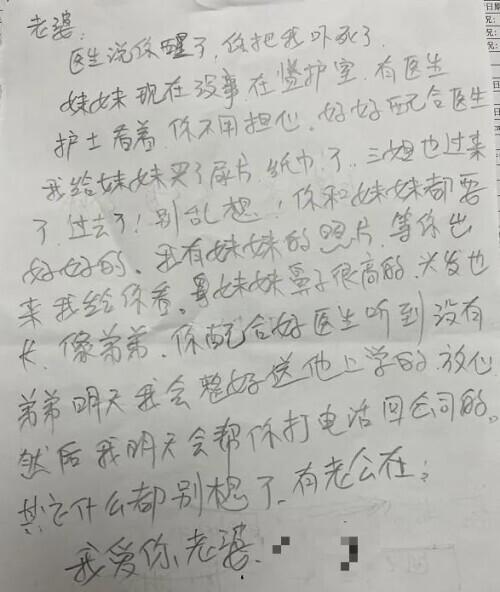 老婆:
医生说你醒了,你把我吓死了
妹妹现在没事,在监护室,有医生
护士看着,你不用担心,好好配合医生
我给妹妹买了尿片,纸巾了,三姐也过来
了,过去了!别乱想,你和妹妹都要
好好的。我有妹妹的照片,等你出
来我给你看。妹妹鼻子很高的,头发也
长,像弟弟,你配合好医生听到没有
弟弟明天我会整好送他上学的,放心
然后我明天会帮你打电话回公司的。
其它什么都别想了,有老公在;
我爱你,老婆.